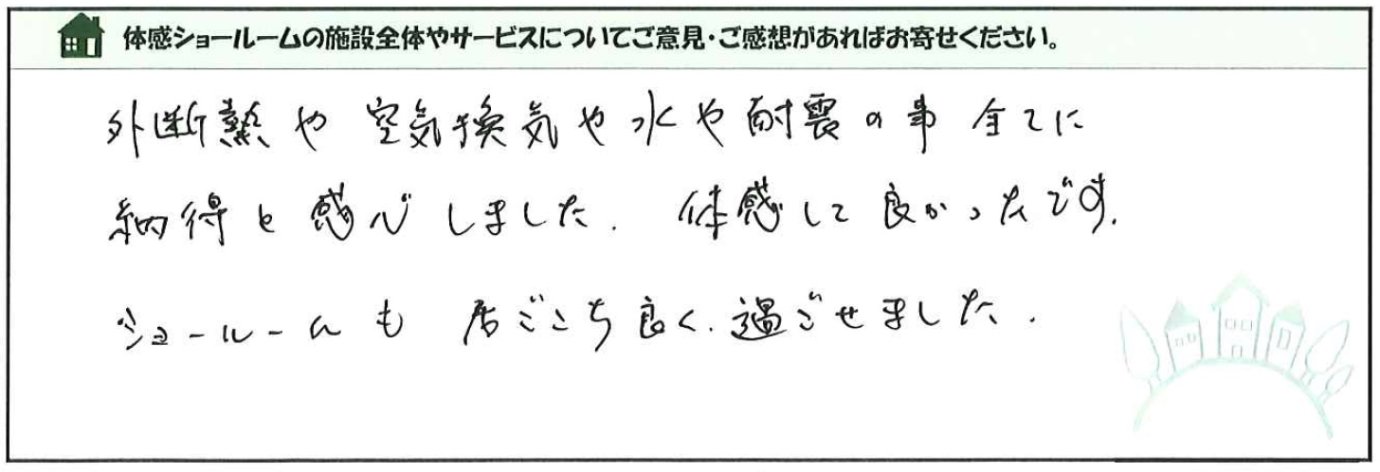 体感ショールームの施設全体やサービスについてご意見・ご感想があればお寄せください。
外断熱や空気換気や水や耐震の事全てに
納得と感心しました. 体感して良かったです.
ショールームも居ごこち良く.過ごせました.